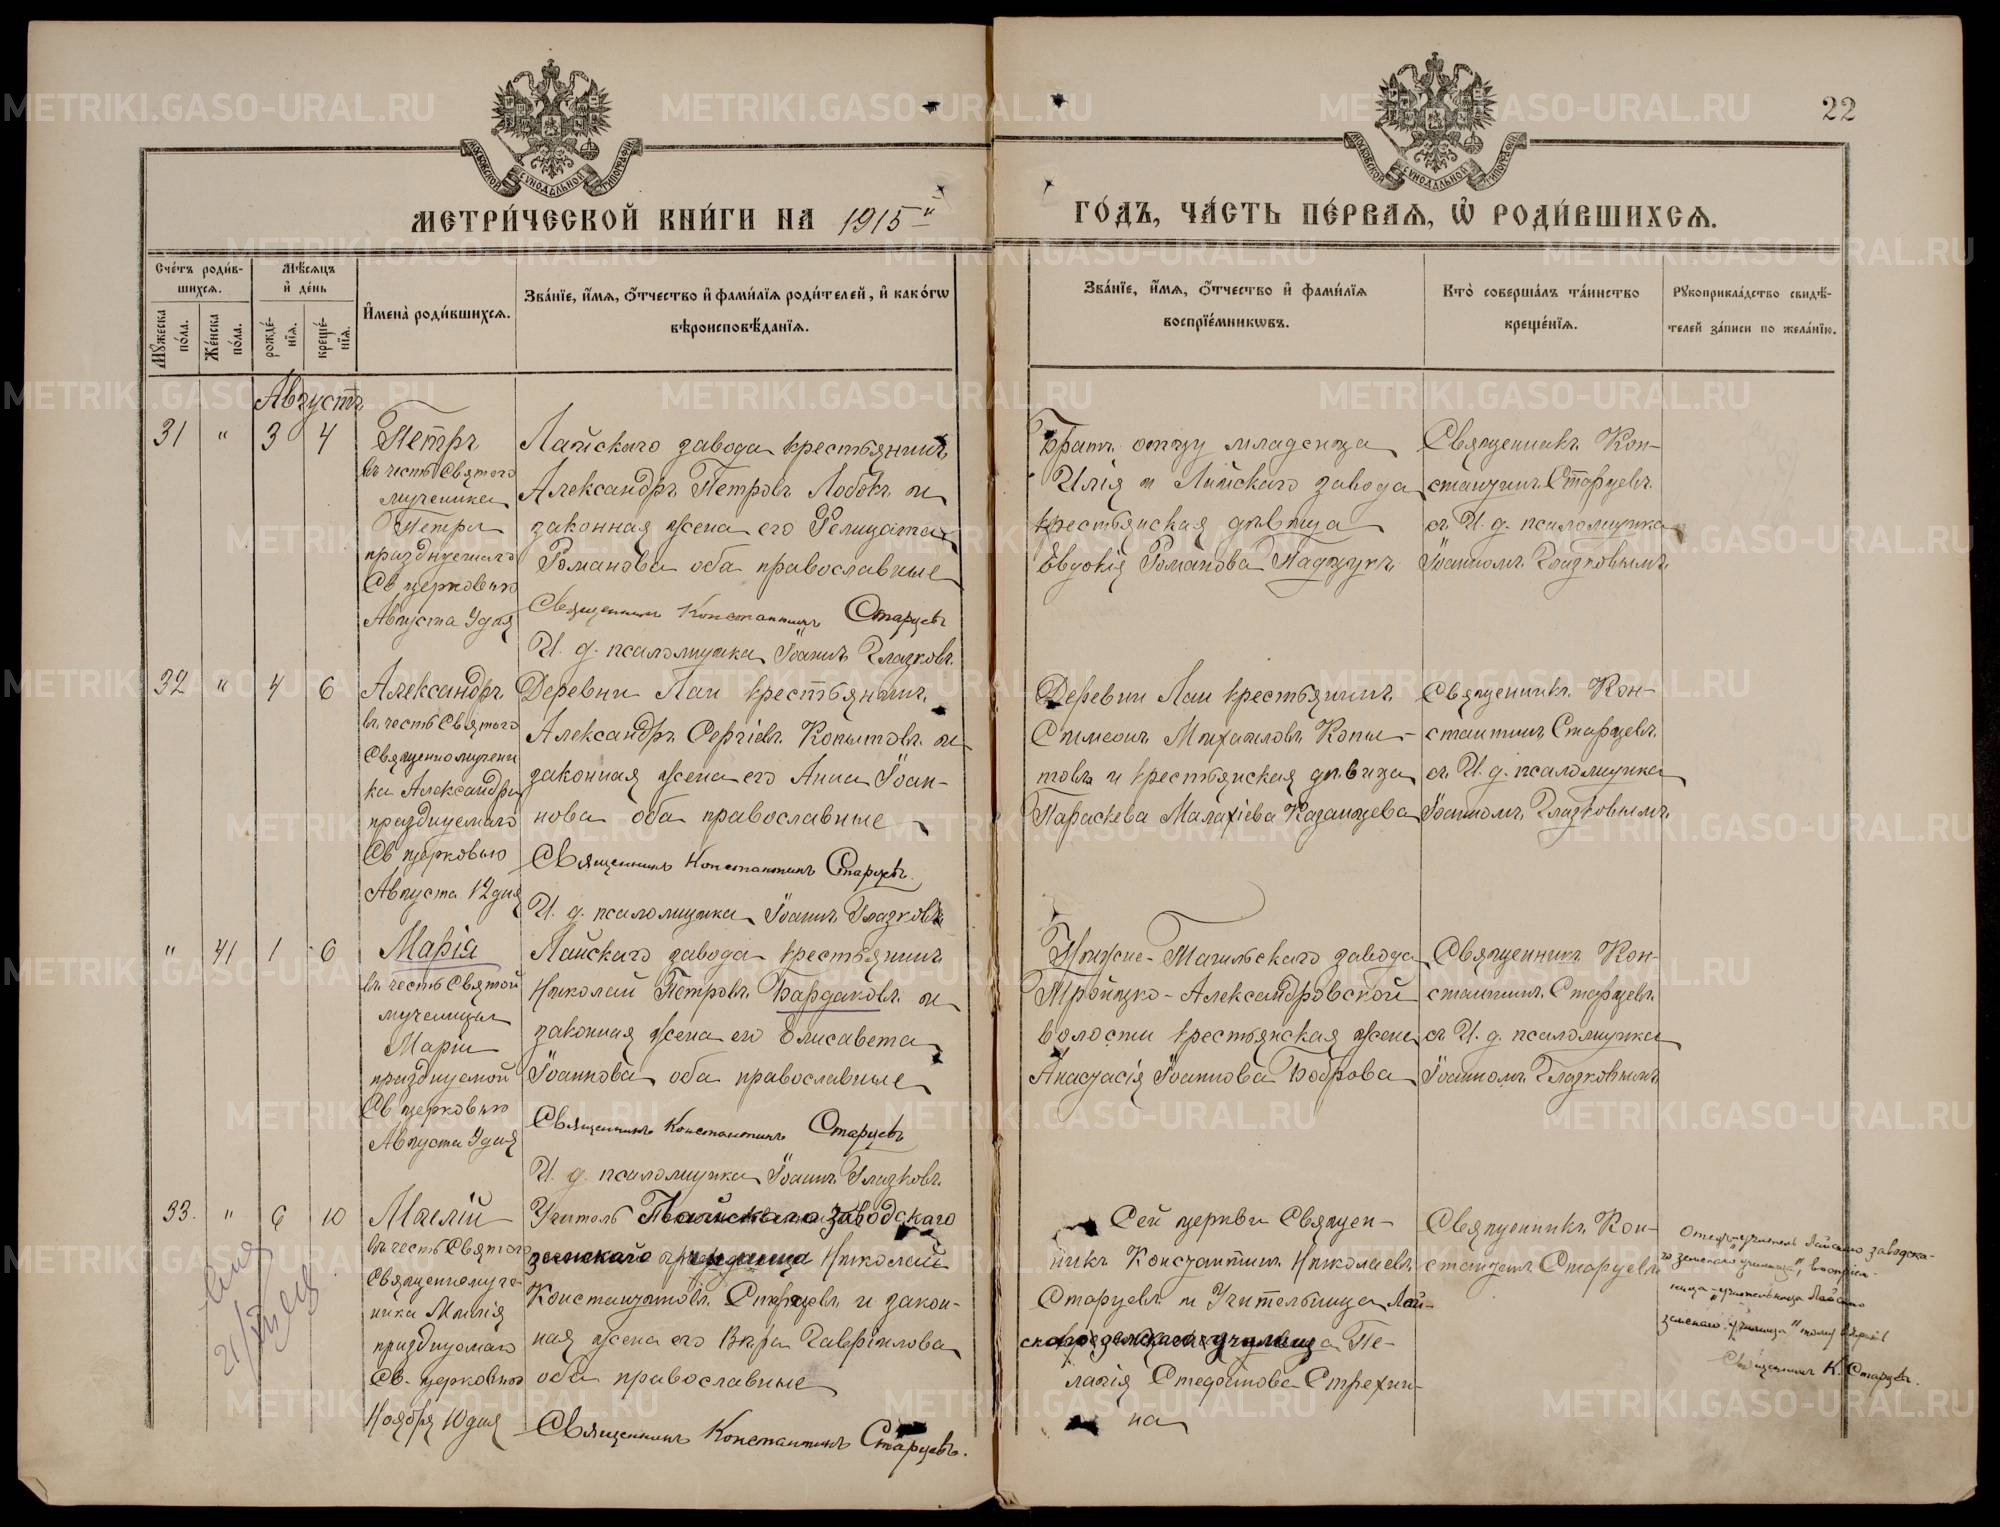 22
МЕТРИ́ЧЕСКОЙ КНИ́ГИ НА 1915 й
ГО́ДЪ, ЧА́СТЬ ПЕ́РВАѦ, Ѡ҆ РОДИ́ВШИХСѦ.
МОСКОВСКОЙ СѴНОДАЛЬНОЙ ТИПОГРАФІИ
МОСКОВСКОЙ СѴНОДАЛЬНОЙ ТИПОГРАФІИ
Сче́тъ роди́в-
шихсѧ.
Мѣ́сѧцъ
и҆ де́нь
Мꙋ́жеска
по́ла.
Же́нска
по́ла.
рожде́-
нїѧ.
креще́-
нїѧ.
И҆мена̀ роди́вшихсѧ.
Зва́нїе, и҆́мѧ, ѻ҆́тчество и҆ фами́лїѧ роди́телей, и҆ како́гѡ
вѣроисповѣ́данїѧ.
Зва́нїе, и҆́мѧ, ѻ҆́тчество и҆ фами́лїѧ
воспрїе́мникѡвъ.
Кто̀ соверша́лъ та́инство
креще́нїѧ.
Рꙋкоприкла́дство свидѣ́-
телей за́писи по жела́нїю.
Августъ
31 " 3 4
Петръ
въ честь Святого
мученика
Петра
празднуемаго
Св церковью
Августа 9 дня
Лайскаго завода крестьянинъ
Александръ Петровъ Лобокъ и
законная жена его Фелицата
Романова оба православные
Священникъ Константинъ Старцевъ
И. д. псаломщика Іоаннъ Глазковъ
Братъ отцу младенца
Илія и Лайскаго завода
крестьянская дѣвица
Евдокія Романова Падчукъ
Священникъ Кон-
стантинъ Старцевъ
съ И. д. псаломщика
Іоанномъ Глазковымъ
32 " 4 6
Александръ
въ честь Святого
Священномучени
ка Александра
празднуемаго
Св церковью
Августа 12 дня
Деревни Лаи крестьянинъ
Александръ Сергіевъ Копытовъ и
законная жена его Анна Іоан-
нова оба православные
Священникъ Константинъ Старцевъ.
И. д. псаломщика Іоаннъ Глазковъ
Деревни Лаи крестьянинъ
Симеонъ Михаиловъ Копы-
товъ и крестьянская дѣвица
Параскева Малахіева Казанцева
Священникъ Кон-
стантинъ Старцевъ
съ И. д. псаломщика
Іоанномъ Глазковымъ
" 41 1 6
Марія
въ честь Святой
мученицы
Маріи
празднуемой
Св церковью
Августа 9 дня
Лайскаго завода крестьянинъ
Николай Петровъ Бардаковъ и
законная жена его Елисавета
Іоаннова оба православные
Священникъ Константинъ Старцевъ
И. д. псаломщика Іоаннъ Глазковъ
Нижне-Тагильскаго завода
Тройцко-Александровской
волости крестьянская жена
Анастасія Іоаннова Боброва
Священникъ Кон-
стантинъ Старцевъ
съ И. д. псаломщика
Іоанномъ Глазковымъ
33. " 6 10
Милій
въ честь Святого
Священномуче-
ника Милія
празднуемаго
Св. церковью
Ноября 10 дня
Учитель Лайскаго заводскаго
земскаго училища Николай
Константиновъ Старцевъ и закон-
ная жена его Вѣра Гавріилова
оба православные
Священникъ Константинъ Старцевъ.
Сей церкви Священ-
никъ Константинъ Николаевъ
Старцевъ и Учительница Лай-
скаго земскаго училища Пе-
лагія Стефанова Стрехни-
на
Священникъ Кон-
стантинъ Старцевъ
отецъ-учитель Лайскаго заводска-
го земскаго училища", воспріем-
ница-учительница Лайскаго
земскаго училища" тому вѣрить
Священникъ К. Старцевъ.